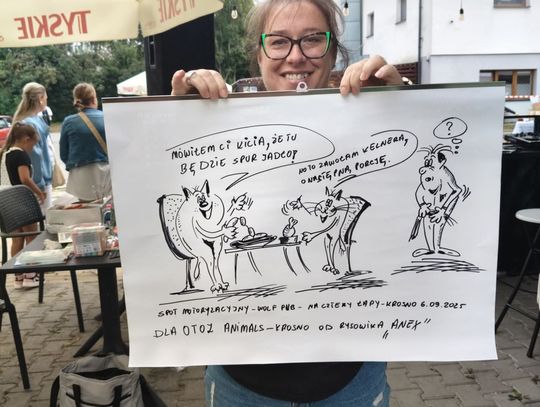 TYSKIE
TYSKIE
MÓWIŁEM CI KICIA, ŻE TU
BĘDZIE SPUR JADCO?
NO TO ZAWOŁAM KELNERA,
O NASTĘPNĄ PORCJĘ.
?
SPOT MOTORYZACYJNY-WOLF PUB-NA CZTERY ŁAPY-KROSNO 6.09.2025
DLA OTOZ ANIMALS-KROSNO OD RYSOWNIKA "ANEX"